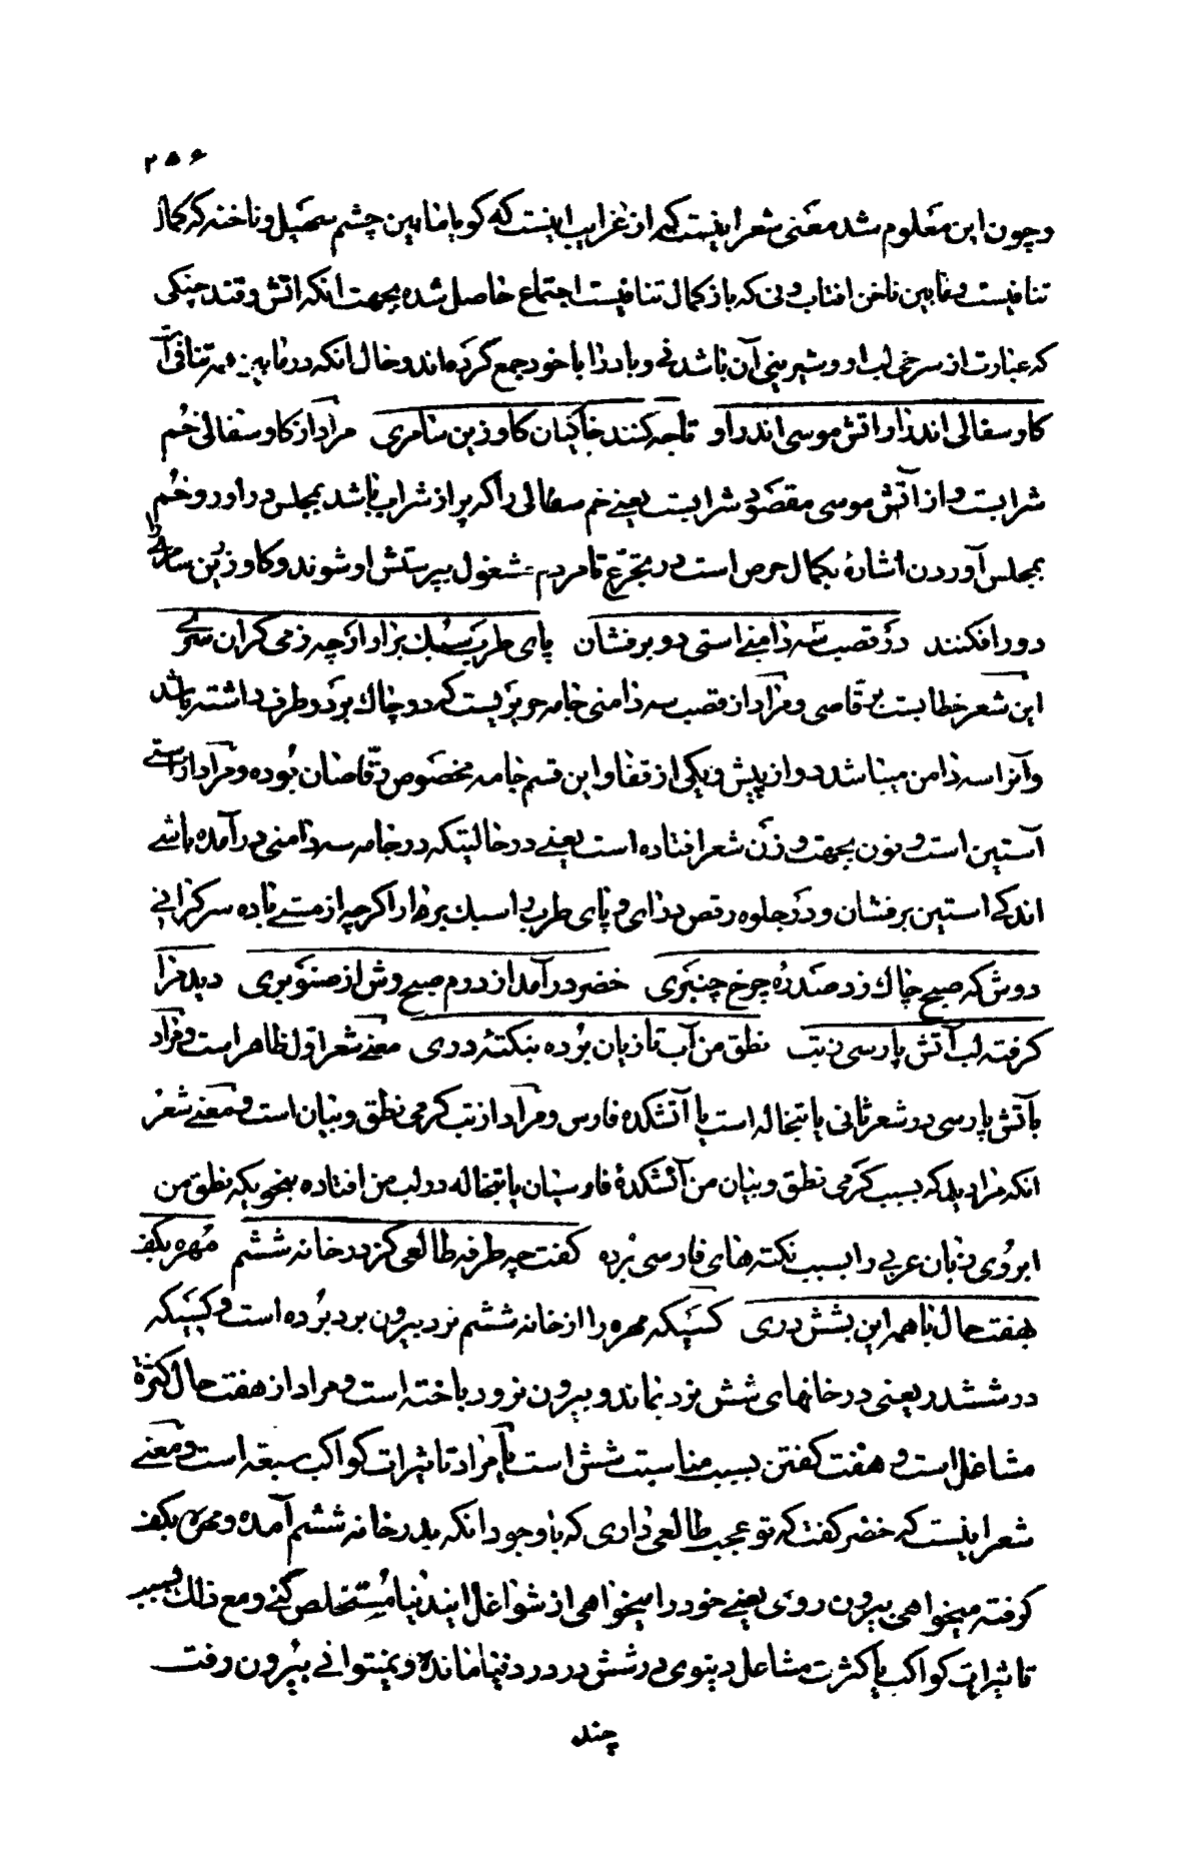 ۲۵۶
و چون این معلوم شد معنی شعر اینست که از غرایب اینست که کویا مابین چشم سهیل و ناخنه که کمال
تنافیست و مابین ناخن افتاب و نی که باز کمال تنافیست اجتماع حاصل شده بجهت انکه اتش و قند چنکی
که عبارت از سرخی لب او و شیرینی آن باشد نی و باد را با خود جمع کرده‌اند و حال انکه در مابین همه تنافی
کاو سفالی اندر ار اتش موسی اندر او تا چه کنند خاکیان کاو زرین سامری مراد از کاو سفالی خم
شرابست و از آتش موسی مقصود شرابست یعنی خم سفالی را که پر از شراب باشد بمجلس در اور و خم
بمجلس آوردن اشاره بکمال حرص است در تجرع تا مردم مشغول بپرستش او شوند و کاو زرین سامری را
دور افکنند در قصب سه دامنی استی دو بر فشان پای طرب سبک برار ار چه ز می کران سری
این شعر خطابست برقاصی و مراد از قصب سه دامنی جامه حریریست که دو چاک بر دو طرف داشته باشد
و آنرا سه دامن میباشد دو از پیش و یکی از قفا و این قسم جامه مخصوص رقاصان بوده و مراد از استی
آستین است و نون بجهت وزن شعر افتاده است یعنی در حالتیکه در جامه سه دامنی در آمده باشی
اندکی استین بر فشان و در جلوه رقص در ای و پای طرب را سبک بردار اکرچه از مستی باده سرکرانی
دوش که صبح چاک زد صدره چرخ چنبری خضر در آمد از درم صبح‌وش از منوری دید مرا
کرفته لب آتش پارسی ز تب نطق من آب تازیان برده بنکته دری معنی شعر اول ظاهر است و مراد
بآتش پارسی در شعر ثانی یا تبخاله است یا آتشکده فارس و مراد از تب کرمی نطق و بیان است و معنی شعر
انکه مرا دید که بسبب کرمی نطق و بیان من آتشکدهٔ فارسیان یا تبخاله در لب من افتاده بنحویکه نطق من
ابروی زبان عربی را بسبب نکته‌های فارسی برده کفت چه طرفه طالعی کز در خانه ششم مهره بکف
هفت حال با همه این بشش دری کسیکه مهره را از خانه ششم نرد بیرون برد برده است و کسیکه
در ششدر یعنی در خانهای شش نرد بماند و بیرون نرود باخته است و مراد از هفت حال کثرة
مشاغل است و هفت کفتن بسبب مناسبت شش است یا مراد تاثیرات کواکب سبعه است و معنی
شعر اینست که خضر کفت که تو عجب طالعی داری که با وجود انکه بدر خانه ششم آمده و مهره بکف
کرفته میخواهی بیرون روی یعنی خود را میخواهی از شواغل ایندنیا مستخلص کنی و مع ذلک بسبب
تاثیرات کواکب یا کثرت مشاغل دنیوی در شش در دنیا مانده و نمیتوانی بیرون رفت
چند